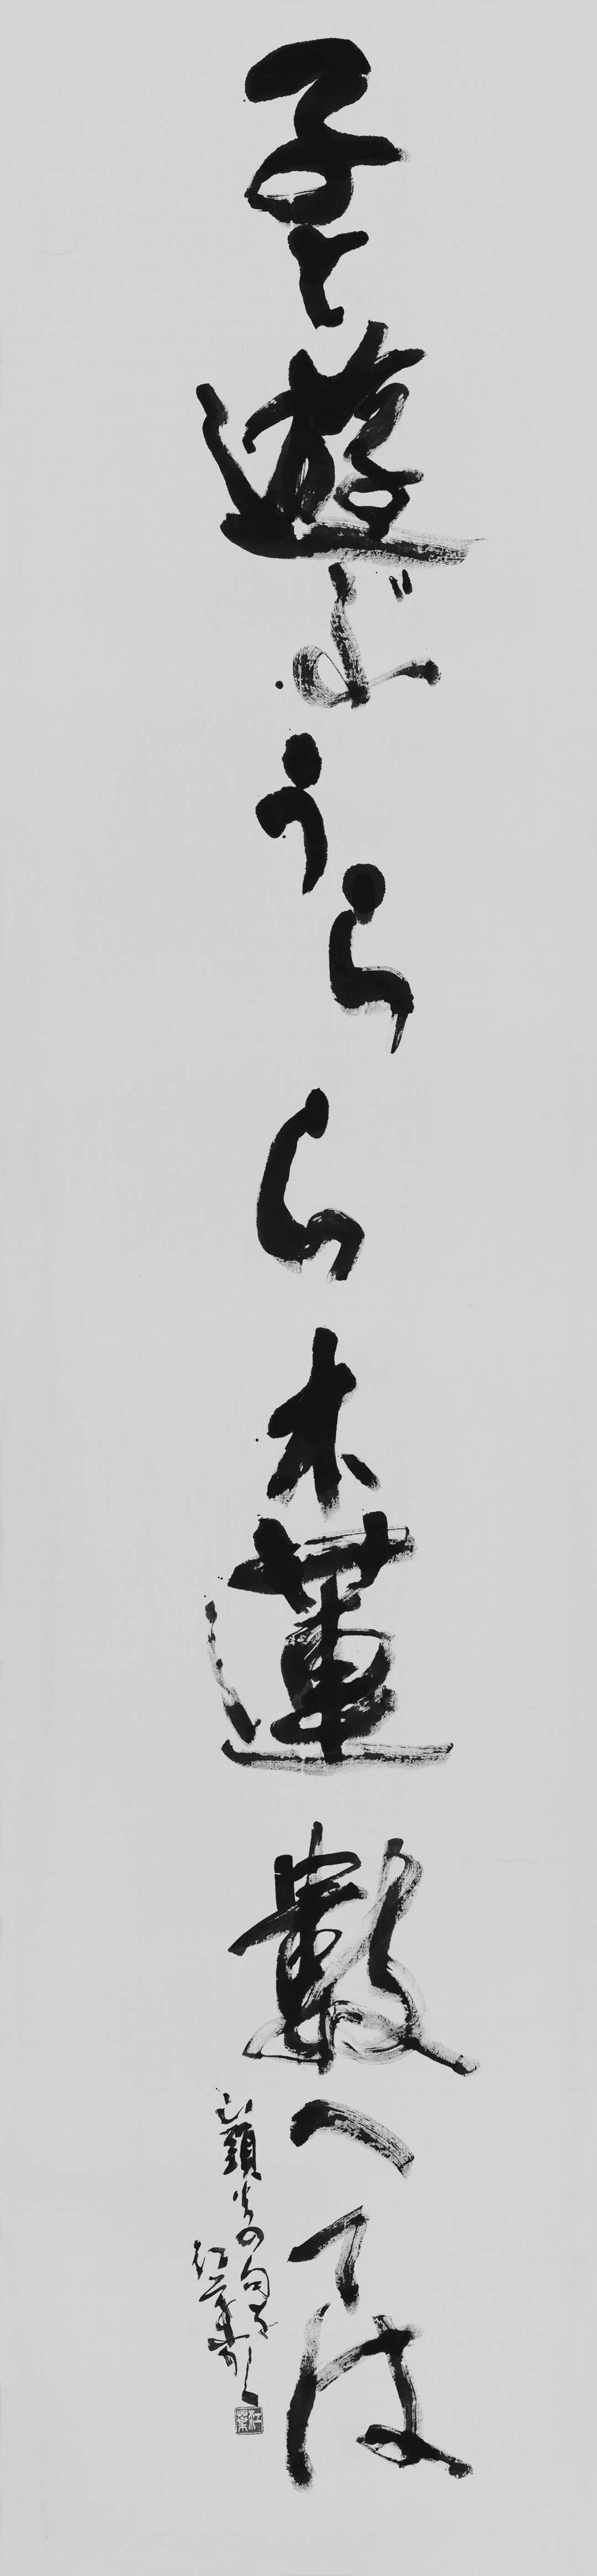 子と遊ぶうらら木蓮數へては
山頭火の句を